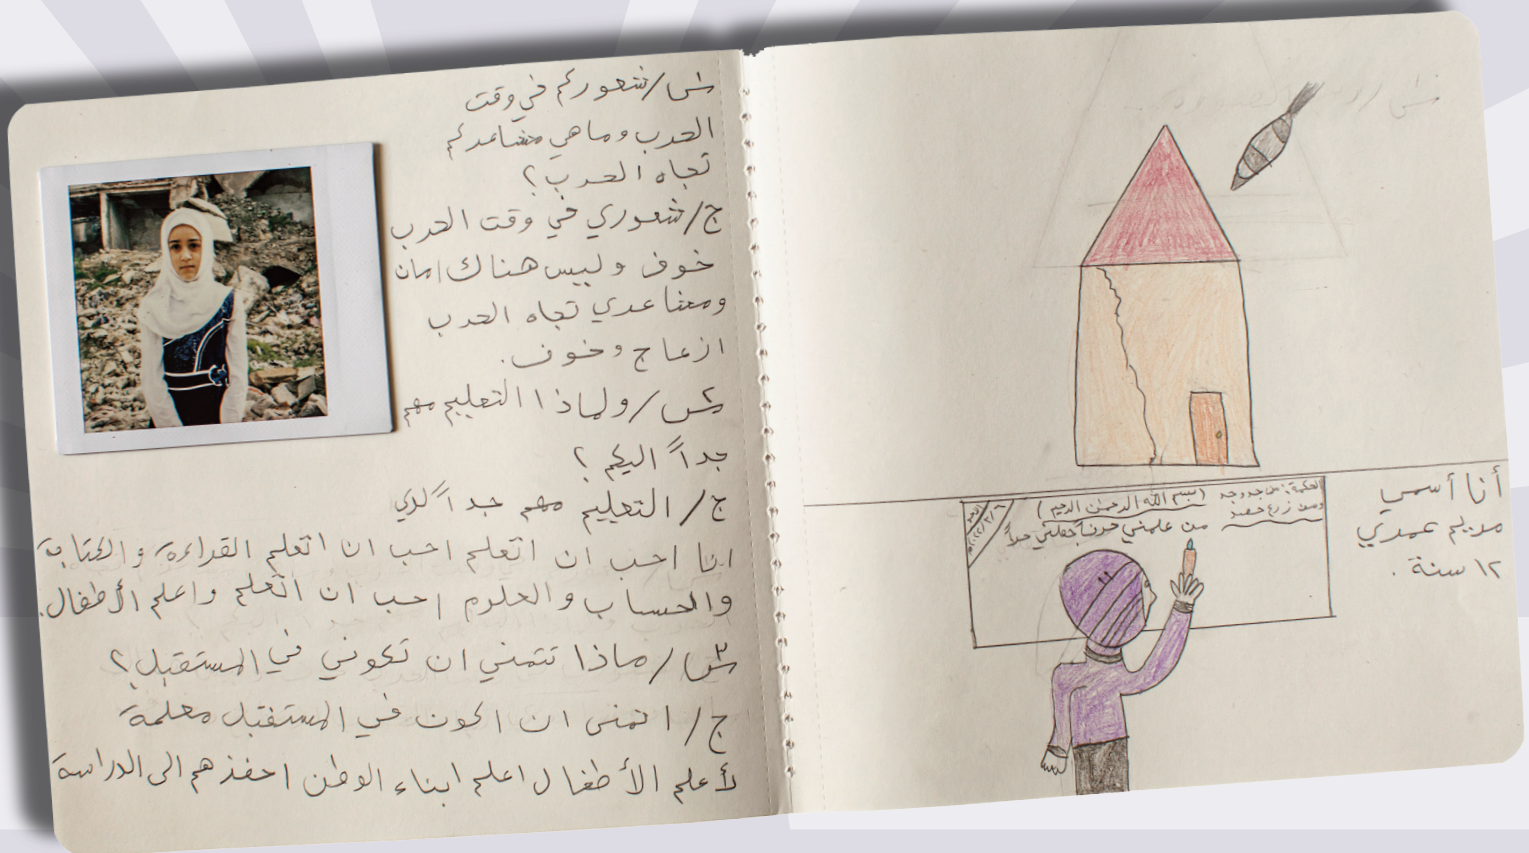 س١/ شعوركم في وقت
الحرب وما هي مشاعركم
تجاه الحرب؟
ج/ شعوري في وقت الحرب
خوف وليس هناك امان
ومشاعري تجاه الحرب
ازعاج وخوف.
س٢/ ولماذا التعليم مهم
جداً اليكم؟
ج/ التعليم مهم جداً لدي
انا احب ان اتعلم احب ان اتعلم القراءة والكتابة
والحساب والعلوم احب ان اتعلم واعلم الأطفال.
س٣/ ماذا تتمني ان تكوني في المستقبل؟
ج/ اتمنى ان اكون في المستقبل معلمة
لأعلم الأطفال اعلم ابناء الوطن احفزهم الى الدراسة
أنا أسمي
مريم
١٢ سنة.
(بسم الله الرحمن الرحيم)
من علمني حرفاً
الحكمة: من جد وجد
ومن زرع حصد